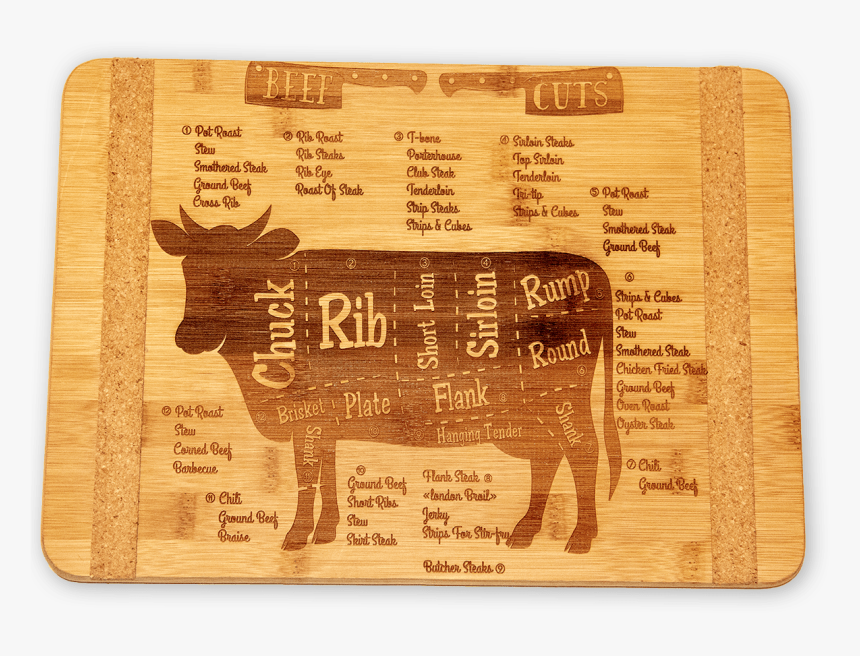 BEEF CUTS
① Pot Roast
Stew
Smothered Steak
Ground Beef
Cross Rib
② Rib Roast
Rib Steaks
Rib Eye
Roast Of Steak
③ T-bone
Porterhouse
Club Steak
Tenderloin
Strip Steaks
Strips & Cubes
④ Sirloin Steaks
Top Sirloin
Tenderloin
Tri-tip
Strips & Cubes
⑤ Pot Roast
Stew
Smothered Steak
Ground Beef
⑥
Strips & Cubes
Pot Roast
Stew
Smothered Steak
Chicken Fried Steak
Ground Beef
Oven Roast
Oyster Steak
① Chuck
② Rib
③ Short Loin
④ Sirloin
Rump
Round ⑥
Brisket
Plate
Flank
Hanging Tender
Shank
Shank
⑫ Pot Roast
Stew
Corned Beef
Barbecue
⑪ Chili
Ground Beef
Braise
⑩
Ground Beef
Short Ribs
Stew
Skirt Steak
Flank Steak ⑧
«london Broil»
Jerky
Strips For Stir-fry
Butcher Steaks ⑨
⑦ Chili
Ground Beef